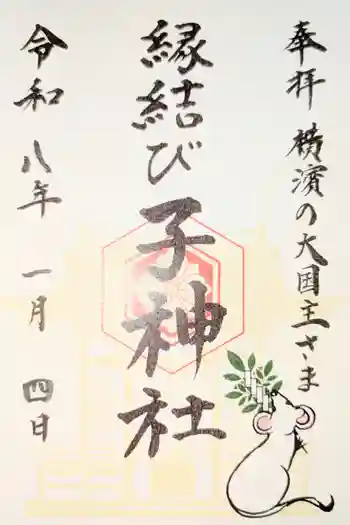 奉拝 横濱の大国主さま
縁結び 子神社
令和八年 一月 四日